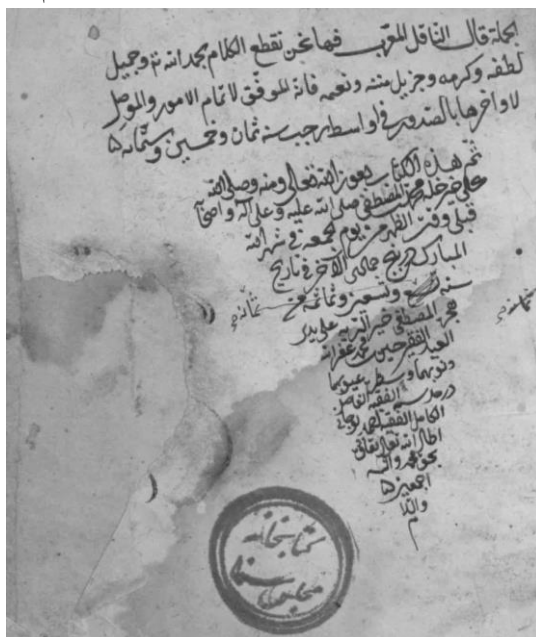 الجملة قال الناقل المعرب فها نحن نقطع الكلام بحمد الله وجميل
لطفه وكرمه وجزيل مننه ونعمه فانه الموفق لاتمام الامور والموصل
لاواخرها بالصدور في اواسط رجب سنه ثمان وخمسين وستمائه
تم هذا الكتاب بعون الله تعالى ومنه وصلى الله
على خير خلقه محمد المصطفى صلى الله عليه وعلى آله واصحا
وقت الظهر من يوم الجمعه في شهر الله
المبارك جمادى الآخر في تاريخ
سنه وتسعين وثمانمائه
ثمانمائه
ثمانمائه
المصطفى خير البريه على يد
العبد الفقير حسين محمد غفر الله
ذنوبهما وستر عيوبهما
در مدرسه الفقيه الفاضل
الكامل الفقيه احمد
اطال الله تعالى بقائه
بحق محمد وآله
اجمعين
والسلام
م
كتابخانه
مجلس سنا